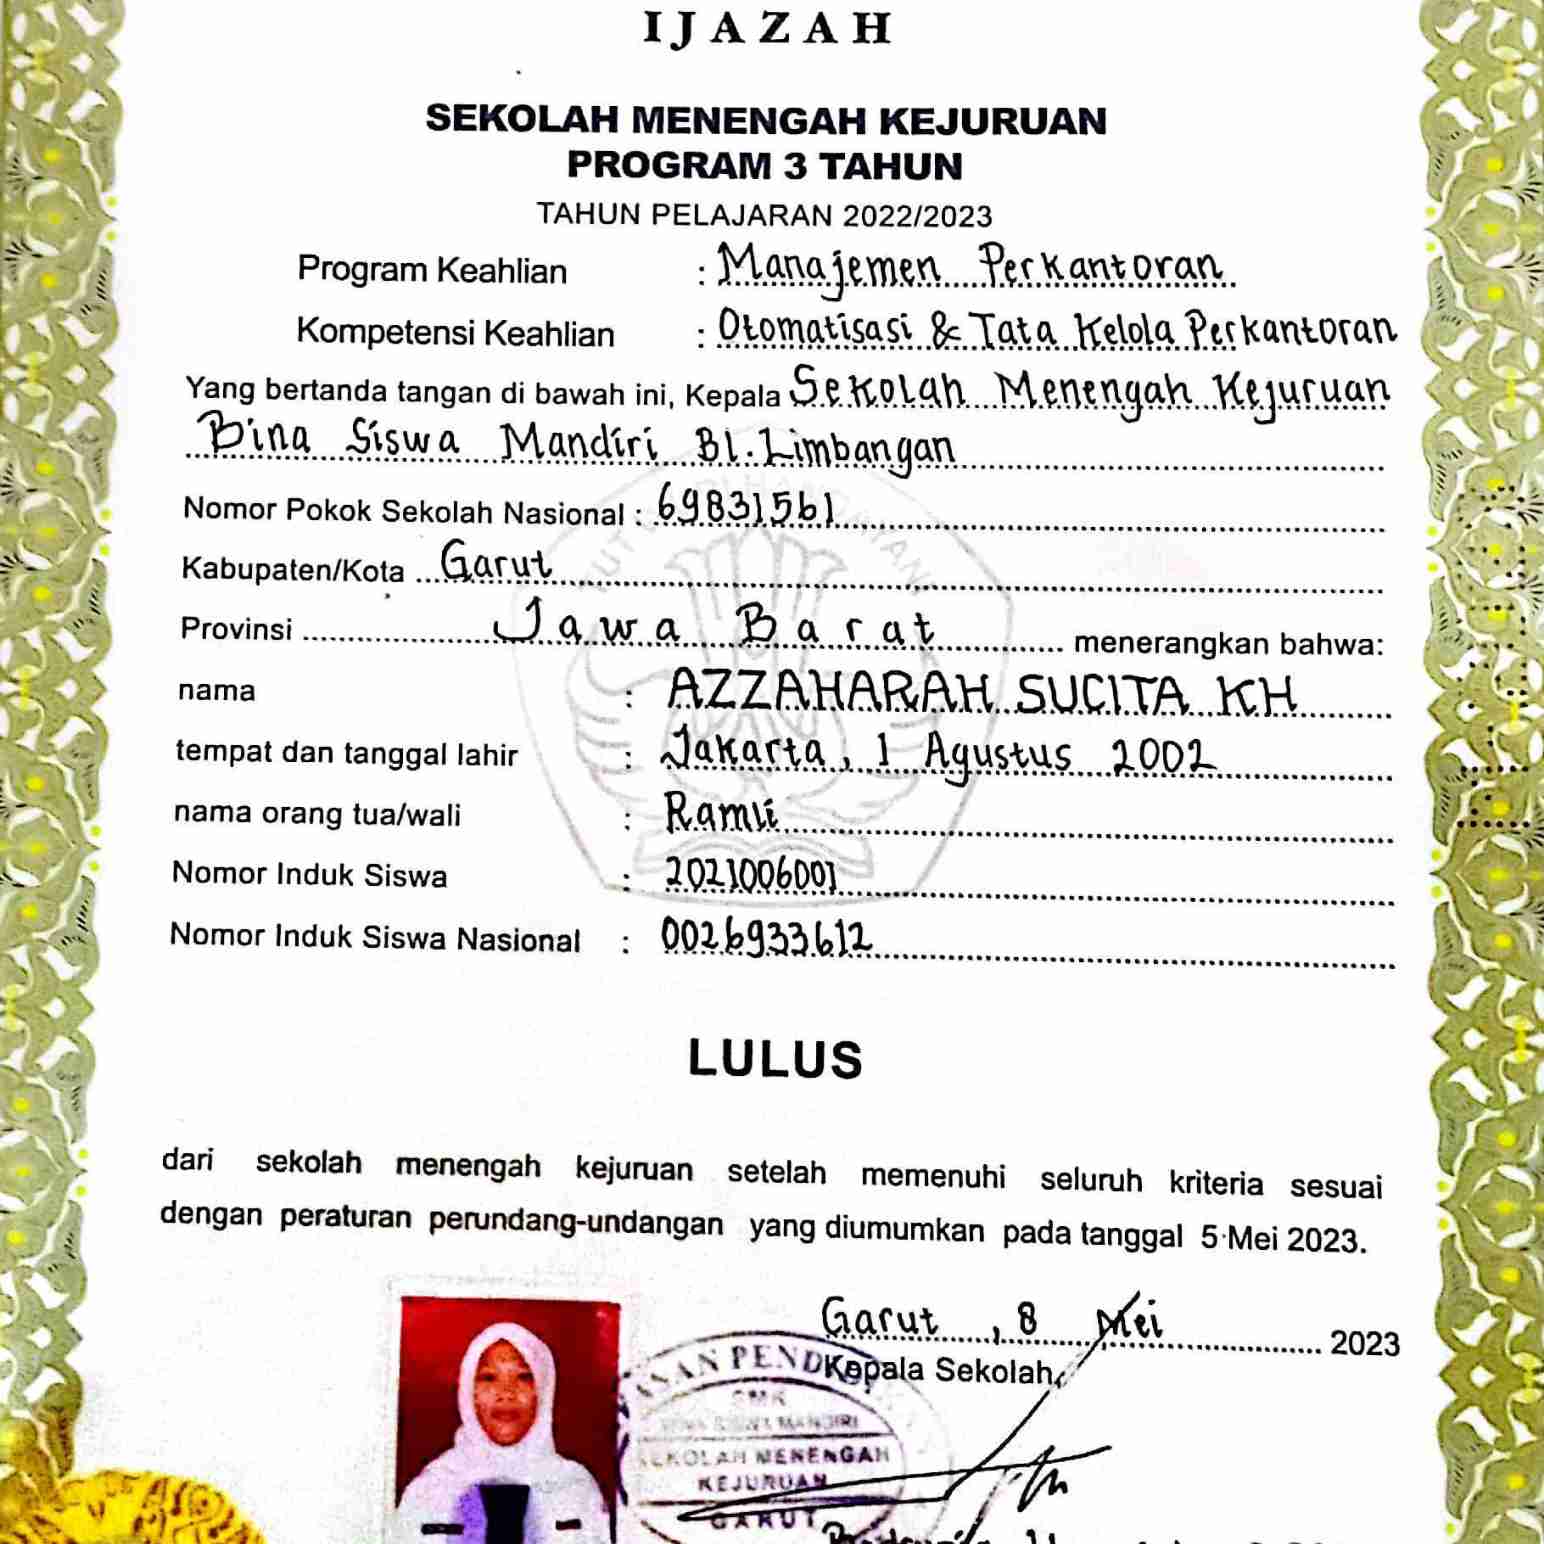 IJAZAH
SEKOLAH MENENGAH KEJURUAN
PROGRAM 3 TAHUN
TAHUN PELAJARAN 2022/2023
Program Keahlian : Manajemen Perkantoran
Kompetensi Keahlian : Otomatisasi & Tata Kelola Perkantoran
Yang bertanda tangan di bawah ini, Kepala Sekolah Menengah Kejuruan
Bina Siswa Mandiri Bl. Limbangan
Nomor Pokok Sekolah Nasional : 69831561
Kabupaten/Kota Garut
Provinsi Jawa Barat menerangkan bahwa:
nama : AZZAHARAH SUCITA KH
tempat dan tanggal lahir : Jakarta, 1 Agustus 2002
nama orang tua/wali : Ramli
Nomor Induk Siswa : 2021006001
Nomor Induk Siswa Nasional : 0026933612
LULUS
dari sekolah menengah kejuruan setelah memenuhi seluruh kriteria sesuai
dengan peraturan perundang-undangan yang diumumkan pada tanggal 5 Mei 2023.
Garut, 8 Mei 2023
Kepala Sekolah,
SMK
SISWA MANDIRI
SEKOLAH MENENGAH
KEJURUAN
GARUT